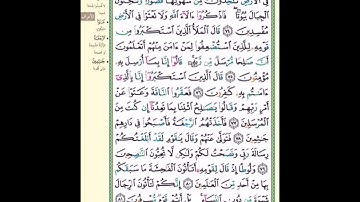 فِي الْأَرْضِ تَتَّخِذُونَ مِن سُهُولِهَا قُصُورًا وَتَنْحِتُونَ
الْجِبَالَ بُيُوتًا فَاذْكُرُوا ءَالَاءَ اللَّهِ وَلَا تَعْثَوْا فِي الْأَرْضِ
مُفْسِدِينَ ٧٤ قَالَ الْمَلَأُ الَّذِينَ اسْتَكْبَرُوا مِن
قَوْمِهِ لِلَّذِينَ اسْتُضْعِفُوا لِمَنْ ءَامَنَ مِنْهُمْ أَتَعْلَمُونَ
أَنَّ صَٰلِحًا مُّرْسَلٌ مِّن رَّبِّهِ قَالُوا إِنَّا بِمَا أُرْسِلَ بِهِ
مُؤْمِنُونَ ٧٥ قَالَ الَّذِينَ اسْتَكْبَرُوا إِنَّا بِالَّذِي
ءَامَنتُم بِهِ كَٰفِرُونَ ٧٦ فَعَقَرُوا النَّاقَةَ وَعَتَوْا عَنْ
أَمْرِ رَبِّهِمْ وَقَالُوا يَٰصَٰلِحُ ائْتِنَا بِمَا تَعِدُنَا إِن كُنتَ مِنَ
الْمُرْسَلِينَ ٧٧ فَأَخَذَتْهُمُ الرَّجْفَةُ فَأَصْبَحُوا فِي دَارِهِمْ
جَٰثِمِينَ ٧٨ فَتَوَلَّىٰ عَنْهُمْ وَقَالَ يَٰقَوْمِ لَقَدْ أَبْلَغْتُكُمْ
رِسَالَةَ رَبِّي وَنَصَحْتُ لَكُمْ وَلَٰكِن لَّا تُحِبُّونَ النَّٰصِحِينَ
٧٩ وَلُوطًا إِذْ قَالَ لِقَوْمِهِ أَتَأْتُونَ الْفَٰحِشَةَ مَا سَبَقَكُم
بِهَا مِنْ أَحَدٍ مِّنَ الْعَٰلَمِينَ ٨٠ إِنَّكُمْ لَتَأْتُونَ الرِّجَالَ
شَهْوَةً مِّن دُونِ النِّسَاءِ بَلْ أَنتُمْ قَوْمٌ مُّسْرِفُونَ ٨١